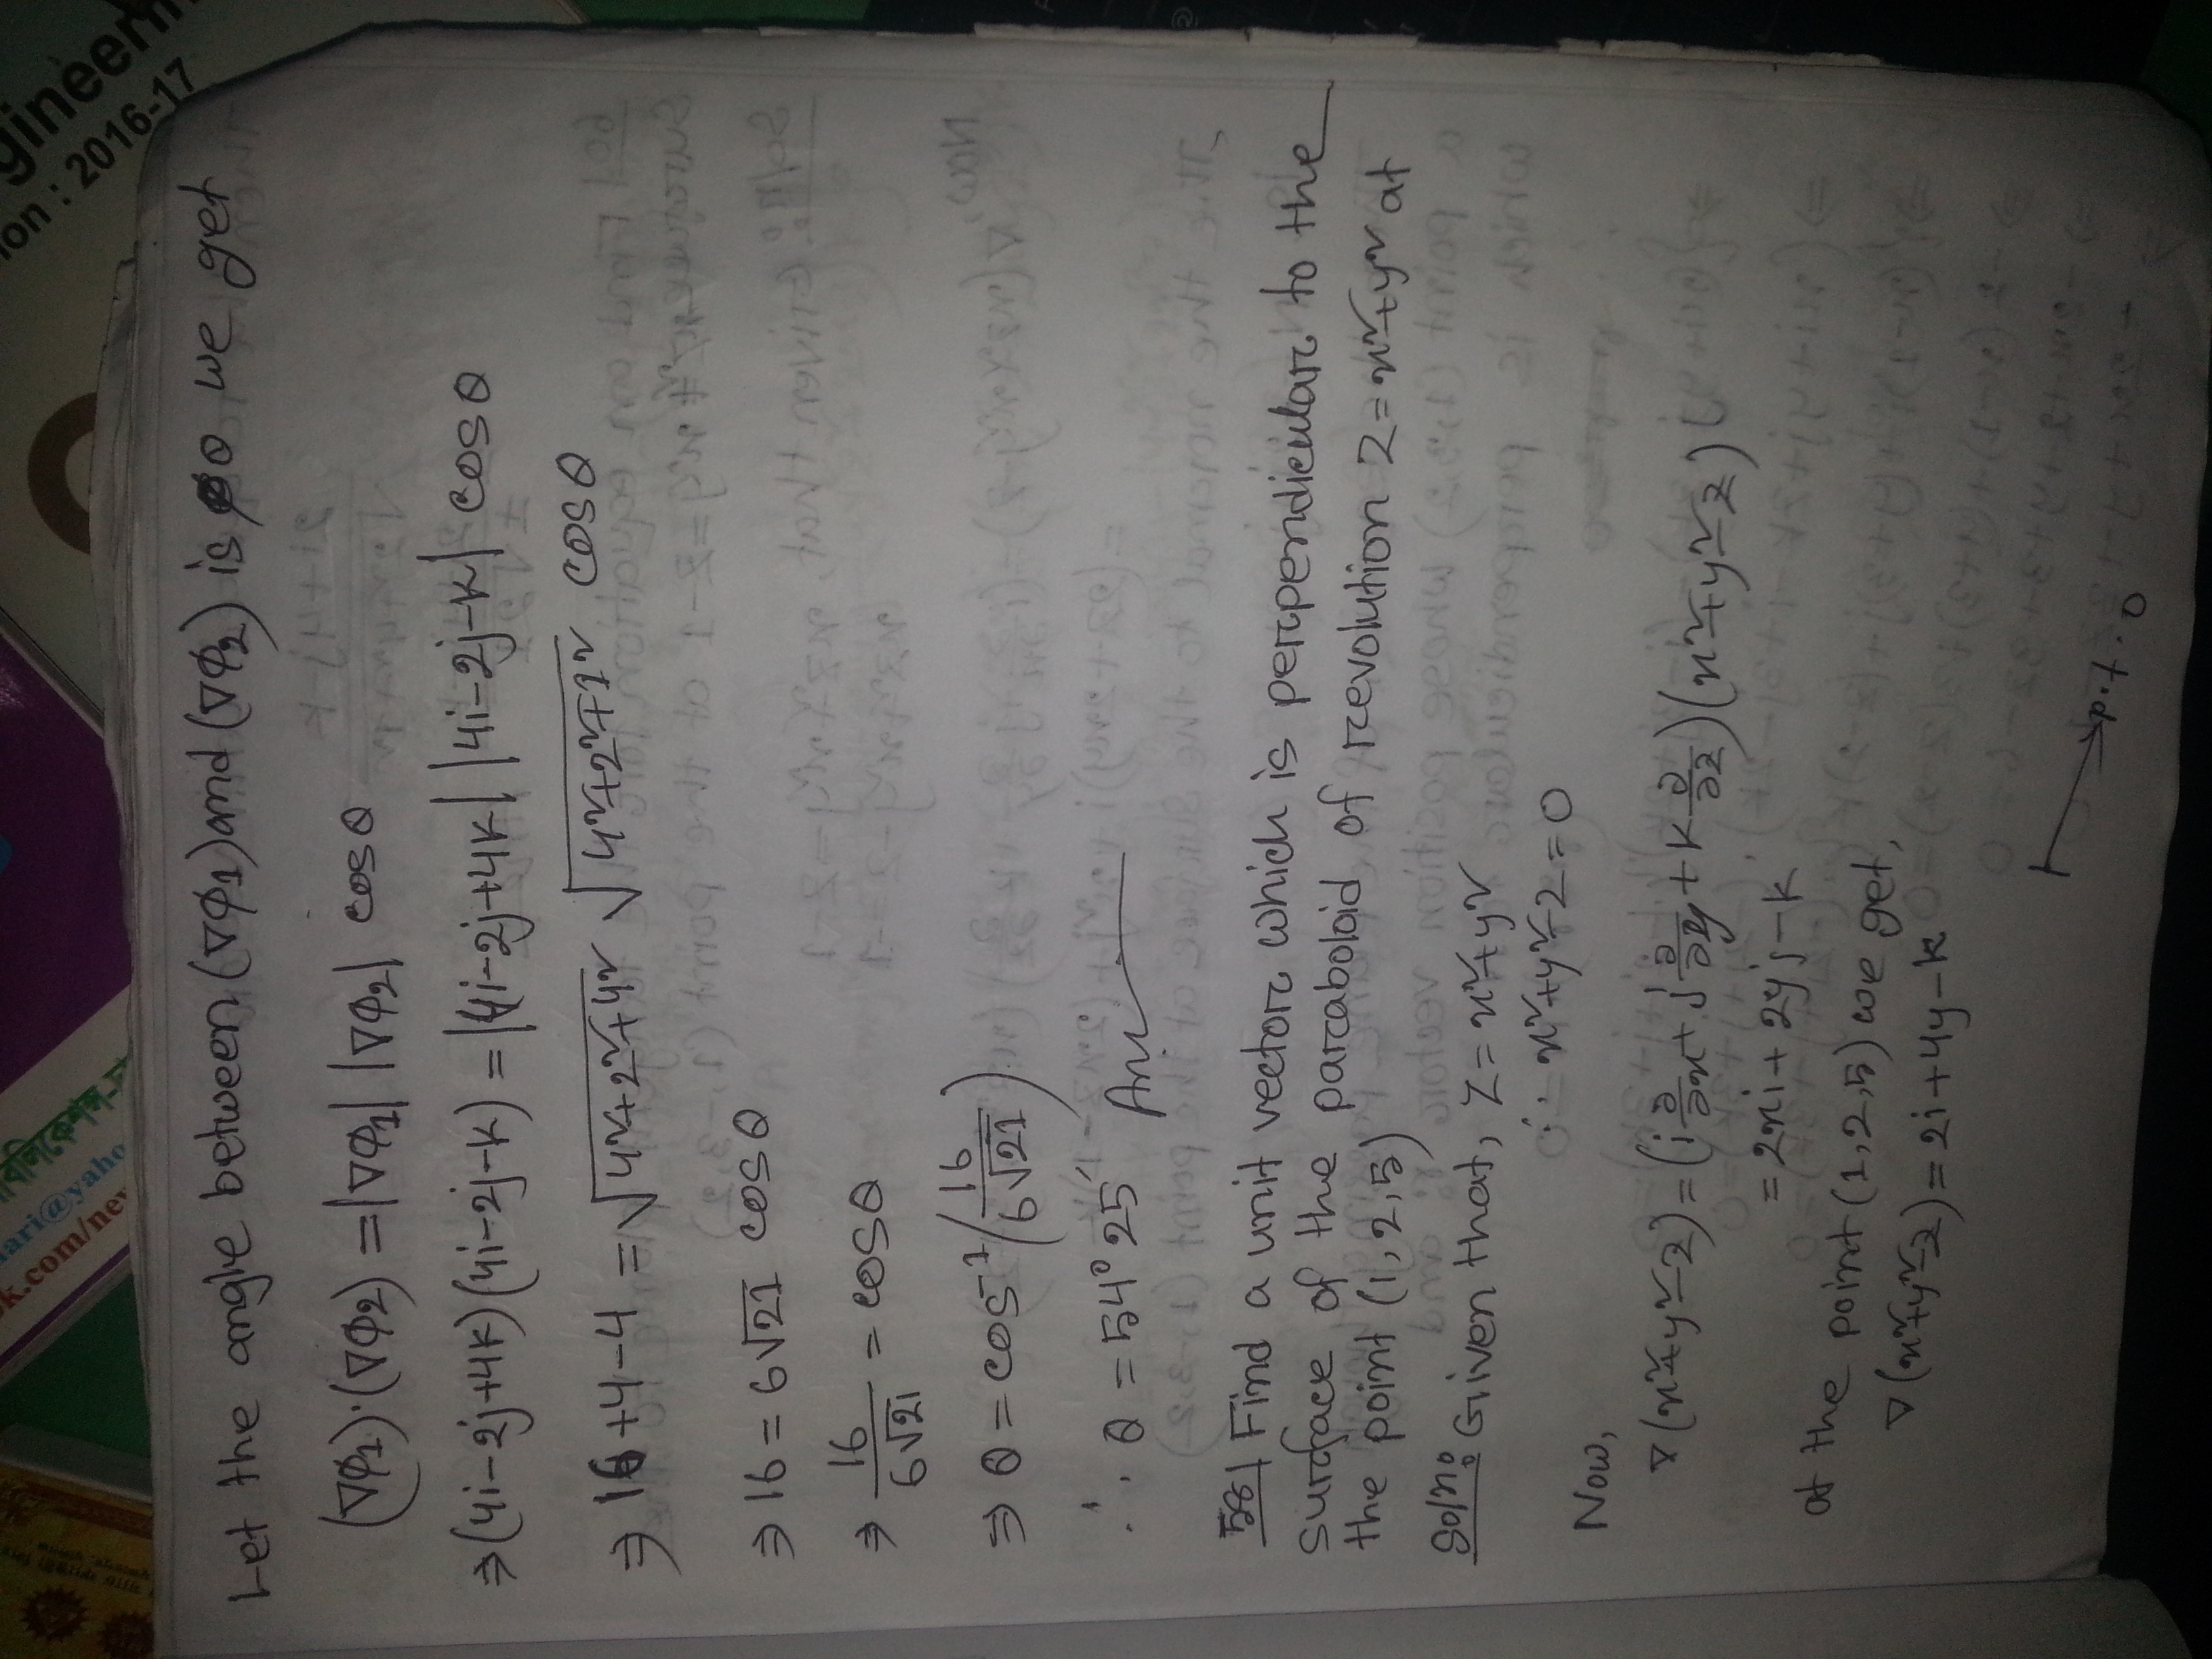 পাবলিকেশন্স-
ari@yaho
k.com/nev
gineerin
ion : 2016-17
Let the angle between (∇φ₁) and (∇φ₂) is θ we get
(∇φ₁)·(∇φ₂) = |∇φ₁| |∇φ₂| cosθ
⇒ (4i-2j+4k)(4i-2j-k) = |4i-2j+4k| |4i-2j-k| cosθ
⇒ 16+4-4 = √4²+2²+4² √4²+2²+1² cosθ
⇒ 16 = 6√21 cosθ
⇒ 16/6√21 = cosθ
⇒ θ = cos⁻¹(16/6√21)
∴ θ = 54°25′ Ans
58| Find a unit vector which is perpendicular to the
surface of the paraboloid of revolution z=x²+y² at
the point (1,2,5)
Solⁿ: Given that, z=x²+y²
∴ x²+y²-z=0
Now,
∇(x²+y²-z) = (i ∂/∂x + j ∂/∂y + k ∂/∂z)(x²+y²-z)
= 2xi+2yj-k
at the point (1,2,5) we get,
∇(x²+y²-z) = 2i+4y-k
p.t.o